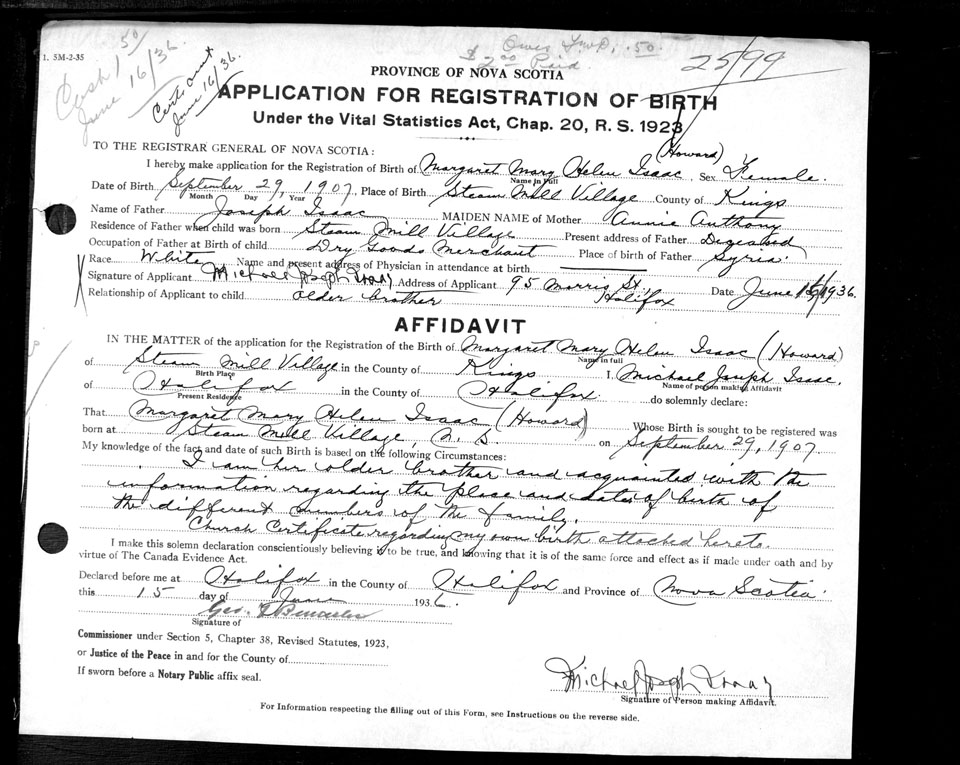 1. 5M-2-35
50/
Cash 1
June 16/36.
Cert. Sent
June 16/36.
.50.
$2.00 Paid.
2599
PROVINCE OF NOVA SCOTIA
APPLICATION FOR REGISTRATION OF BIRTH
Under the Vital Statistics Act, Chap. 20, R. S. 1923
TO THE REGISTRAR GENERAL OF NOVA SCOTIA:
(Howard)
I hereby make application for the Registration of Birth of Margaret Mary Helen Isaac Sex Female.
Name in Full
Date of Birth September 29, 1907, Place of Birth Steam Mill Village County of Kings
Month Day Year
Name of Father Joseph Isaac MAIDEN NAME of Mother Annie Anthony
Residence of Father when child was born Steam Mill Village Present address of Father Deceased
Occupation of Father at Birth of child Dry Goods Merchant Place of birth of Father Syria.
Race White Name and present address of Physician in attendance at birth
Signature of Applicant Michael Joseph Isaac Address of Applicant 95 Morris St., Halifax Date June 15/1936.
Relationship of Applicant to child older brother
AFFIDAVIT
IN THE MATTER of the application for the Registration of the Birth of Margaret Mary Helen Isaac (Howard)
Name in full
of Steam Mill Village in the County of Kings I, Michael Joseph Isaac,
Birth Place Name of person making Affidavit
of Halifax in the County of Halifax do solemnly declare:
Present Residence
That Margaret Mary Helen Isaac (Howard) Whose Birth is sought to be registered was
born at Steam Mill Village, N. S. on September 29, 1907
My knowledge of the fact and date of such Birth is based on the following Circumstances:
I am her older brother and acquainted with the
information regarding the place and dates of birth of
the different members of the family.
Church Certificate regarding my own birth attached hereto.
I make this solemn declaration conscientiously believing it to be true, and knowing that it is of the same force and effect as if made under oath and by
virtue of The Canada Evidence Act.
Declared before me at Halifax in the County of Halifax and Province of Nova Scotia
this 15 day of June 1936.
Geo.
Signature of
Commissioner under Section 5, Chapter 38, Revised Statutes, 1923,
or Justice of the Peace in and for the County of
If sworn before a Notary Public affix seal.
Michael Joseph Isaac
Signature of Person making Affidavit.
For Information respecting the filling out of this Form, see Instructions on the reverse side.